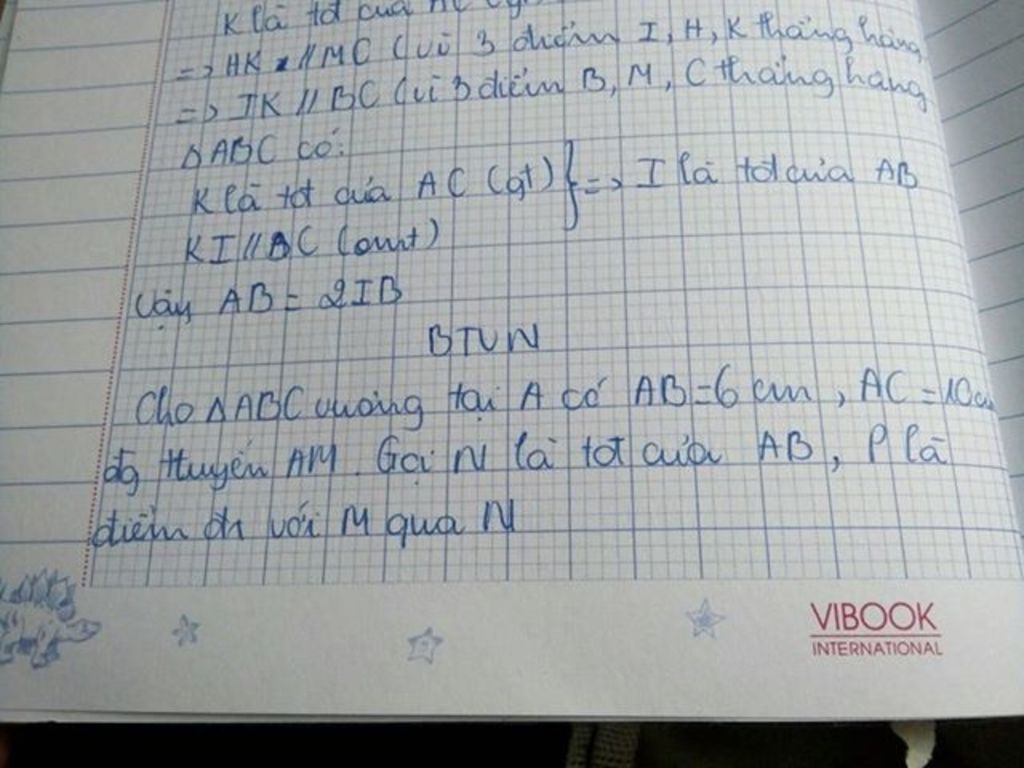 K là tđ của AC (gt)
=> HK // MC (vì 3 điểm I, H, K thẳng hàng
=> IK // BC (vì 3 điểm B, M, C thẳng hàng
Δ ABC có:
K là tđ của AC (gt) } => I là tđ của AB
KI // BC (cmt)
Vậy AB = 2IB
BTVN
Cho Δ ABC vuông tại A có AB = 6 cm , AC = 10cm
đg tuyến AM. Gọi N là tđ của AB , P là
điểm đx với M qua N
VIBOOK
INTERNATIONAL